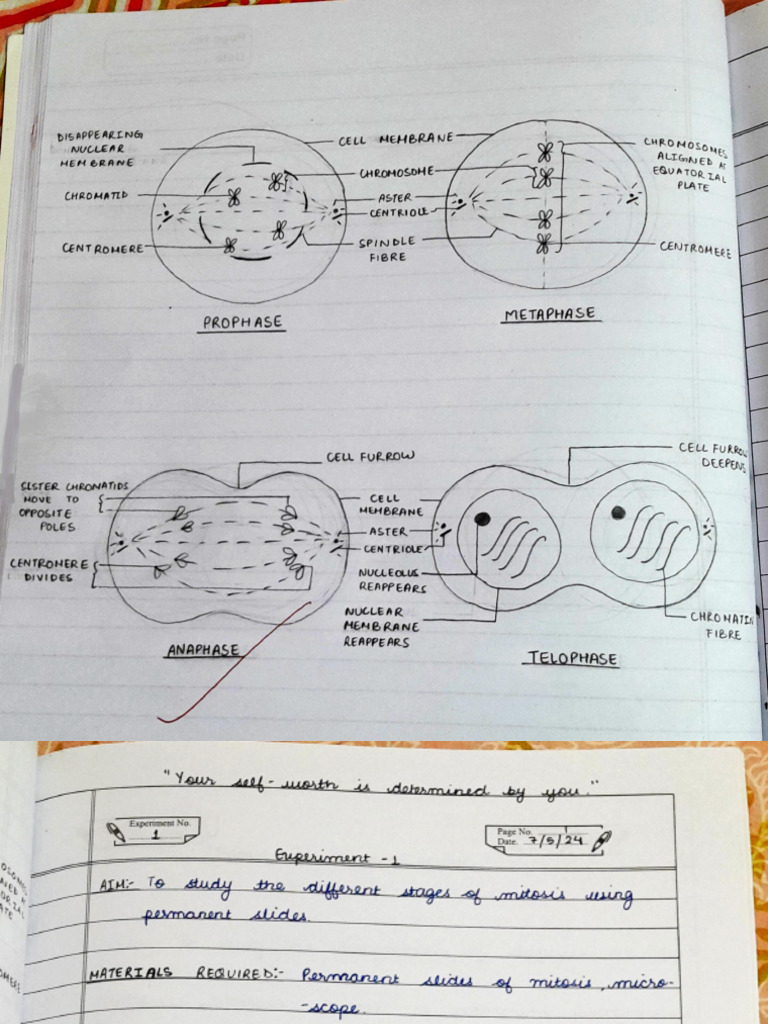 DISAPPEARING
NUCLEAR
MEMBRANE
CHROMATID
CENTROMERE
CELL MEMBRANE
CHROMOSOME
ASTER
CENTRIOLE
SPINDLE
FIBRE
CHROMOSOMES
ALIGNED AT
EQUATORIAL
PLATE
CENTROMERE
PROPHASE
METAPHASE
CELL FURROW
CELL FURROW
DEEPENS
SISTER CHROMATIDS
MOVE TO
OPPOSITE
POLES
CENTROMERE
DIVIDES
CELL
MEMBRANE
ASTER
CENTRIOLE
NUCLEOLUS
REAPPEARS
NUCLEAR
MEMBRANE
REAPPEARS
CHROMATIN
FIBRE
ANAPHASE
TELOPHASE
"Your self-worth is determined by you."
Experiment No. 1
Page No. 1
Date. 7/5/24
Experiment -1
AIM:- To study the different stages of mitosis using
permanent slides.
MATERIALS REQUIRED:- Permanent slides of mitosis, micro-
-scope.